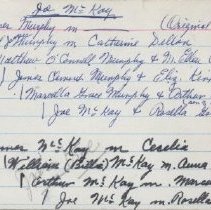 Joe McKay
Murphy m (Original
Murphy m Catherine Dillon
Matthew O'Connell Murphy & M. Ellen
James Murphy & Eliz. Kin
Marcella Grace Murphy & Arthur
Joe McKay & Rosella
McKay m Cecelia
William (Billie) McKay m. Anna
Arthur McKay m Marce
Joe McKay m Rosella